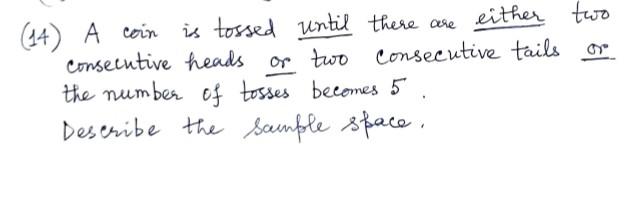 (14) A coin is tossed until there are either two
consecutive heads or two consecutive tails or
the number of tosses becomes 5 .
Describe the sample space.